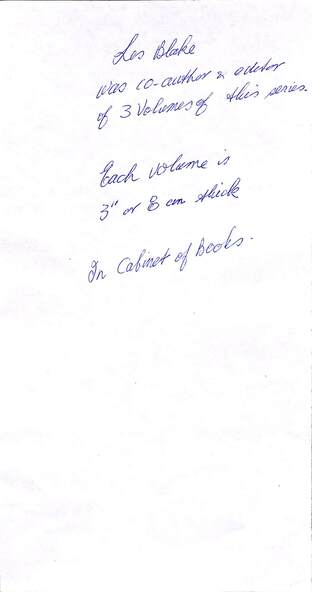 Les Blake
was co-author & editor
of 3 Volumes of this series.
Each volume is
3" or 8 cm thick
In Cabinet of Books.